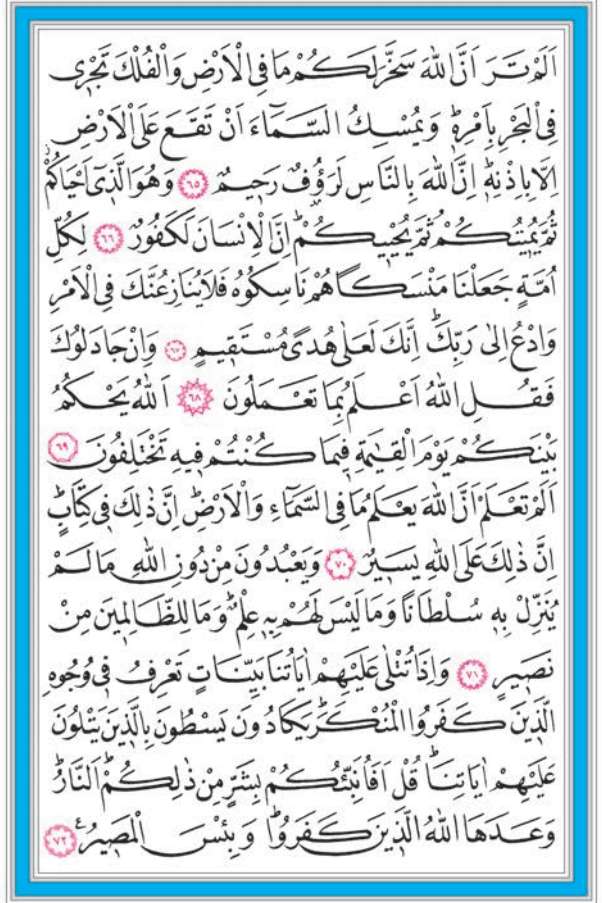 اَلَمْ تَرَ اَنَّ اللّٰهَ سَخَّرَ لَكُمْ مَا فِي الْاَرْضِ وَالْفُلْكَ تَجْر۪ي
فِي الْبَحْرِ بِاَمْرِه۪ۜ وَيُمْسِكُ السَّمَٓاءَ اَنْ تَقَعَ عَلَى الْاَرْضِ
اِلَّا بِاِذْنِه۪ۜ اِنَّ اللّٰهَ بِالنَّاسِ لَرَؤُ۫فٌ رَح۪يمٌ ﴿٦٥﴾ وَهُوَ الَّذ۪ٓي اَحْيَاكُمْۘ
ثُمَّ يُم۪يتُكُمْ ثُمَّ يُحْي۪يكُمْۜ اِنَّ الْاِنْسَانَ لَكَفُورٌ ﴿٦٦﴾ لِكُلِّ
اُمَّةٍ جَعَلْنَا مَنْسَكًا هُمْ نَاسِكُوهُ فَلَا يُنَازِعُنَّكَ فِي الْاَمْرِ
وَادْعُ اِلٰى رَبِّكَۜ اِنَّكَ لَعَلٰى هُدًى مُسْتَق۪يمٍ ﴿٦٧﴾ وَاِنْ جَادَلُوكَ
فَقُلِ اللّٰهُ اَعْلَمُ بِمَا تَعْمَلُونَ ﴿٦٨﴾ اَللّٰهُ يَحْكُمُ
بَيْنَكُمْ يَوْمَ الْقِيٰمَةِ ف۪يمَا كُنْتُمْ ف۪يهِ تَخْتَلِفُونَ ﴿٦٩﴾
اَلَمْ تَعْلَمْ اَنَّ اللّٰهَ يَعْلَمُ مَا فِي السَّمَٓاءِ وَالْاَرْضِۜ اِنَّ ذٰلِكَ ف۪ي كِتَابٍۜ
اِنَّ ذٰلِكَ عَلَى اللّٰهِ يَس۪يرٌ ﴿٧٠﴾ وَيَعْبُدُونَ مِنْ دُونِ اللّٰهِ مَا لَمْ
يُنَزِّلْ بِه۪ سُلْطَانًا وَمَا لَيْسَ لَهُمْ بِه۪ عِلْمٌۜ وَمَا لِلظَّالِم۪ينَ مِنْ
نَص۪يرٍ ﴿٧١﴾ وَاِذَا تُتْلٰى عَلَيْهِمْ اٰيَاتُنَا بَيِّنَاتٍ تَعْرِفُ ف۪ي وُجُوهِ
الَّذ۪ينَ كَفَرُوا الْمُنْكَرَۜ يَكَادُونَ يَسْطُونَ بِالَّذ۪ينَ يَتْلُونَ
عَلَيْهِمْ اٰيَاتِنَاۜ قُلْ اَفَاُنَبِّئُكُمْ بِشَرٍّ مِنْ ذٰلِكُمْۜ اَلنَّارُۜ
وَعَدَهَا اللّٰهُ الَّذ۪ينَ كَفَرُواۜ وَبِئْسَ الْمَص۪يرُ۟ ﴿٧٢﴾